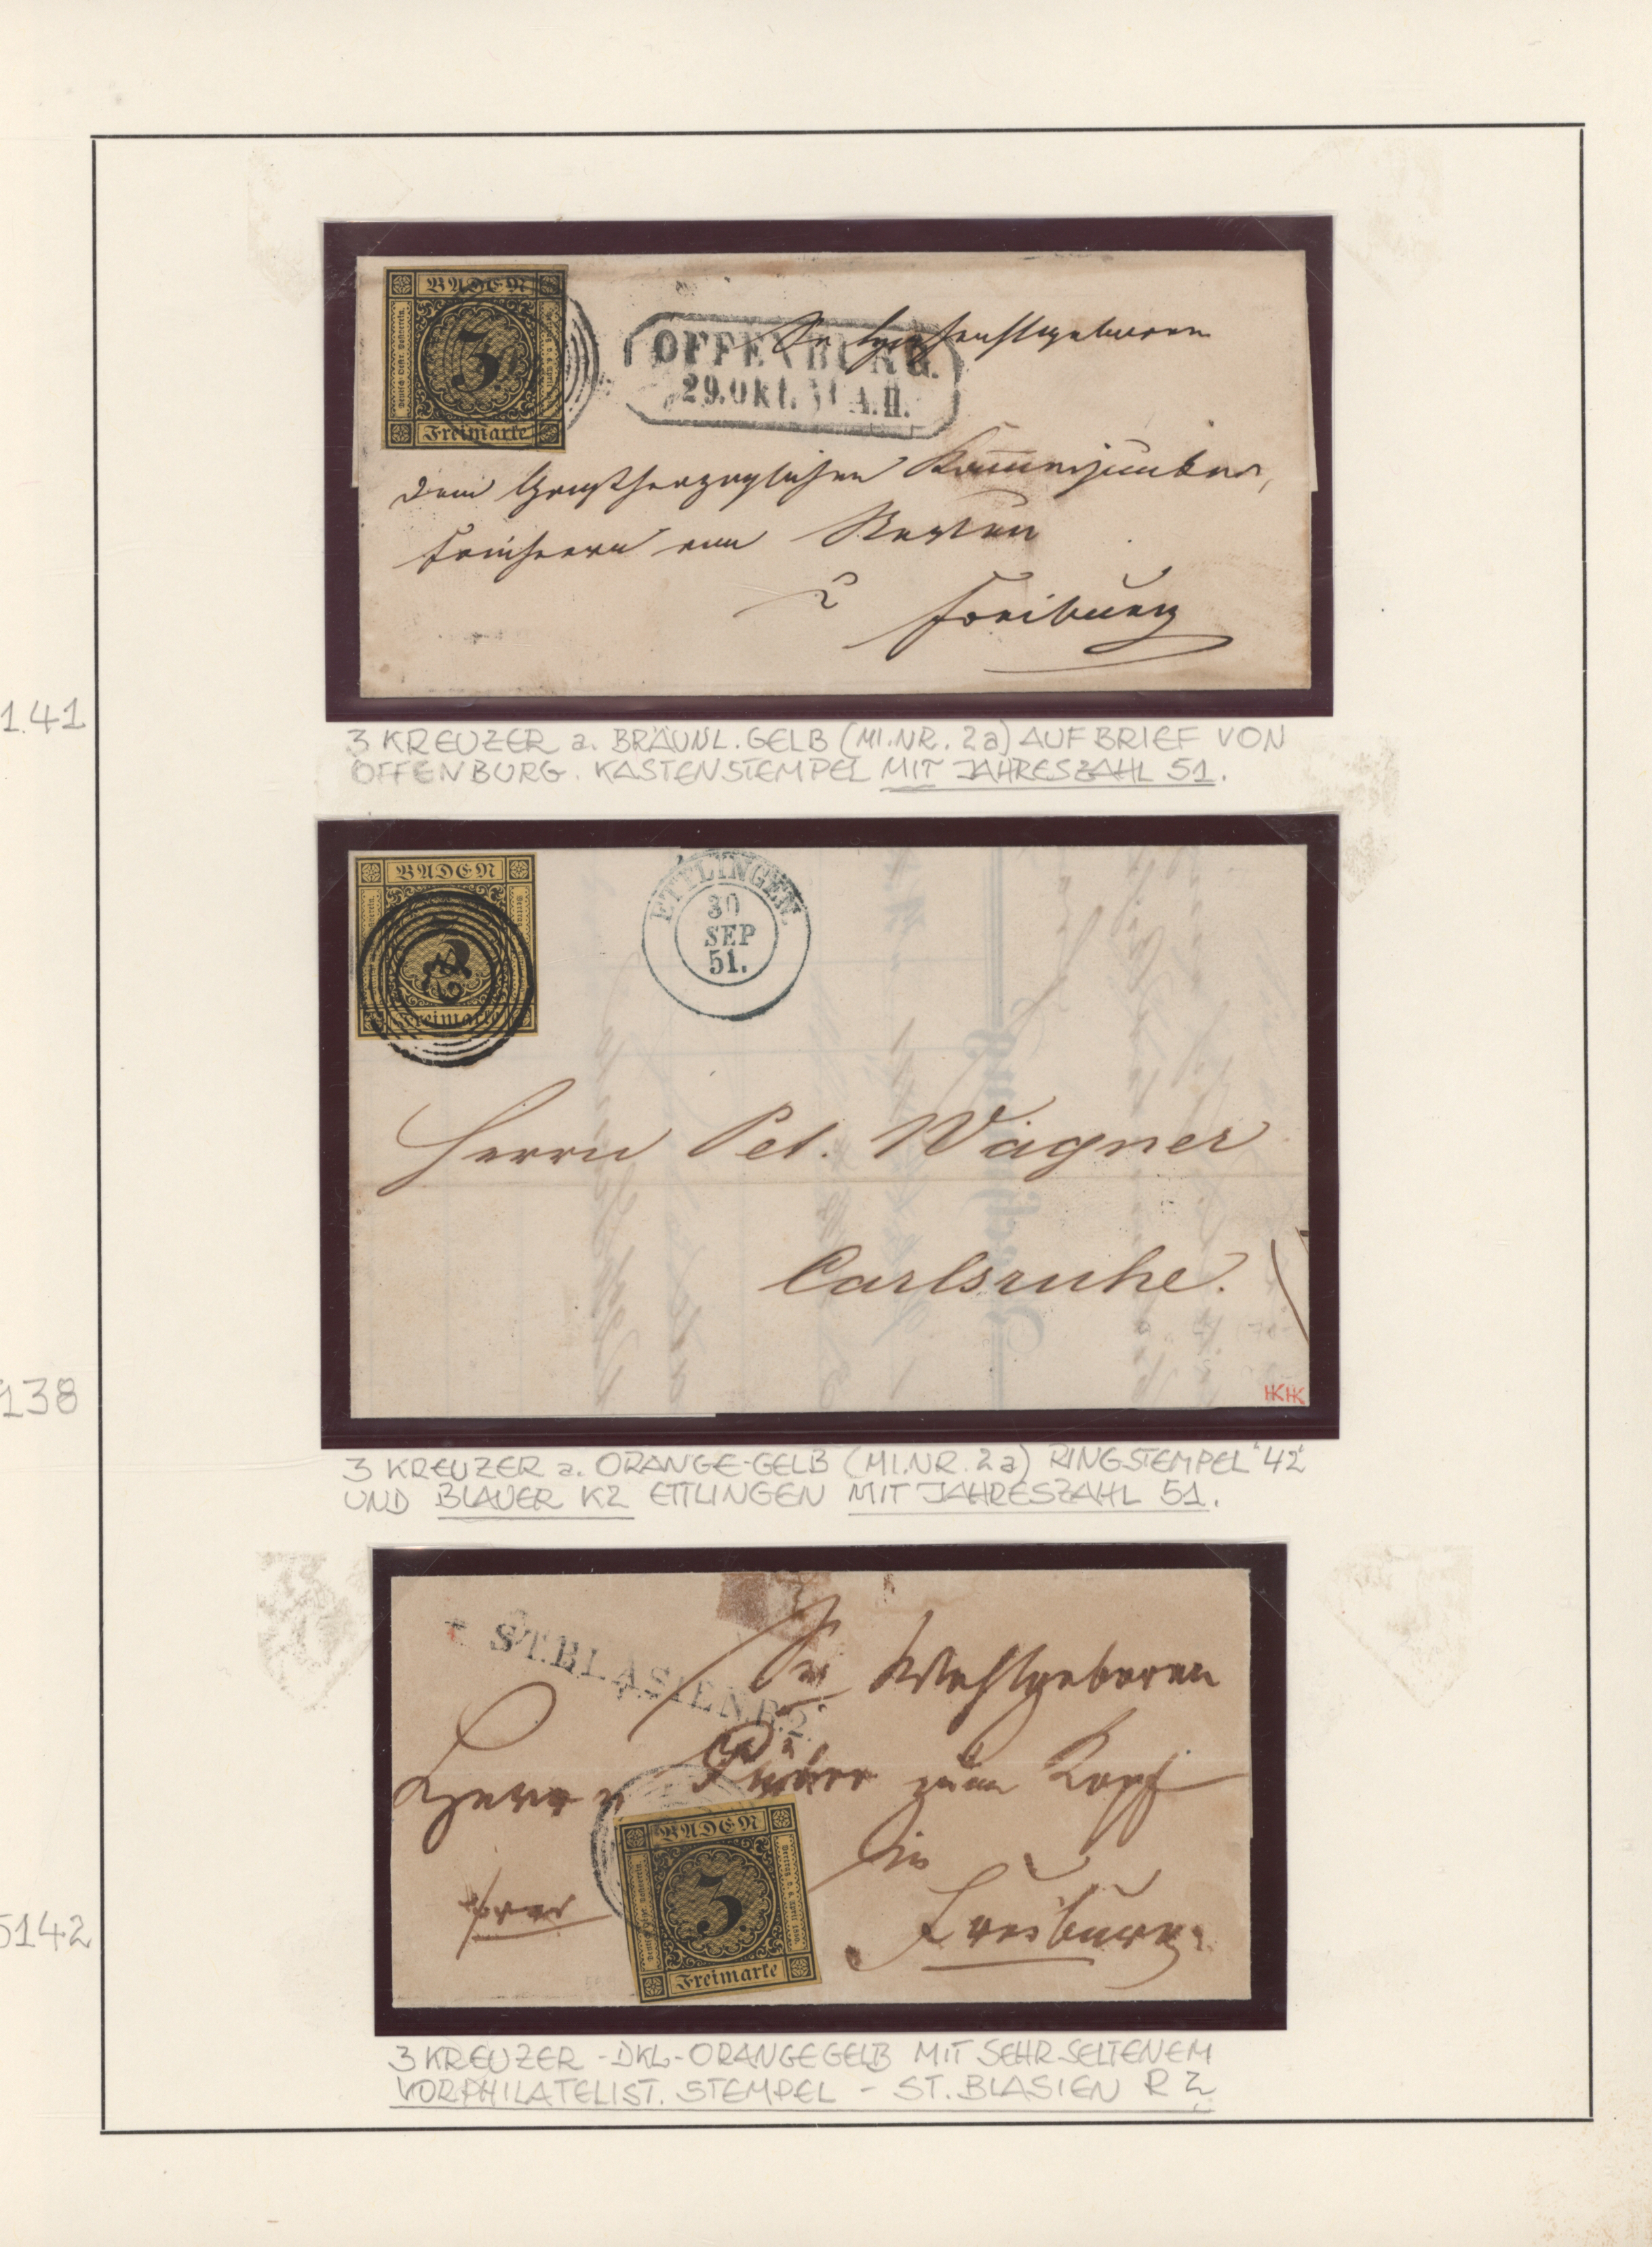 BADEN
3
Freimarke
OFFENBURG.
29.Okt. 51 A.II.
Sr Hochfreiherrlichgeboren
dem Großherzoglichen Kammerjunker,
Freiherrn von
Freiburg
1.41
3 KREUZER a. BRÄUNL. GELB (MI.NR. 2a) AUF BRIEF VON
OFFENBURG. KASTENSTEMPEL MIT JAHRESZAHL 51.
BADEN
Freimarke
ETTLINGEN.
30
SEP
51.
Herrn Pet. Wagner
Carlsruhe.
HKHK
138
3 KREUZER a. ORANGE-GELB (MI.NR. 2a) RINGSTEMPEL "42"
UND BLAUER K2 ETTLINGEN MIT JAHRESZAHL 51.
ST.BLASIEN.R.2.
Sr Wohlgeboren
Herrn zum Kopf
in
Freiburg.
BADEN
3
Freimarke
5142
3 KREUZER - DKL-ORANGEGELB MIT SEHR SELTENEM
VORPHILATELIST. STEMPEL - ST. BLASIEN R2